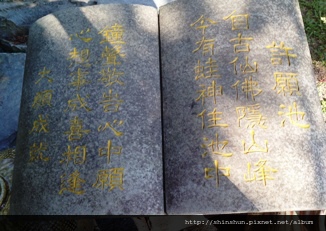 許願池
自古仙佛隱山峰
今有蛙神住池中
爐香
心中願
心想事成喜相逢
大願成就
http://shinshun.pixnet.net/album